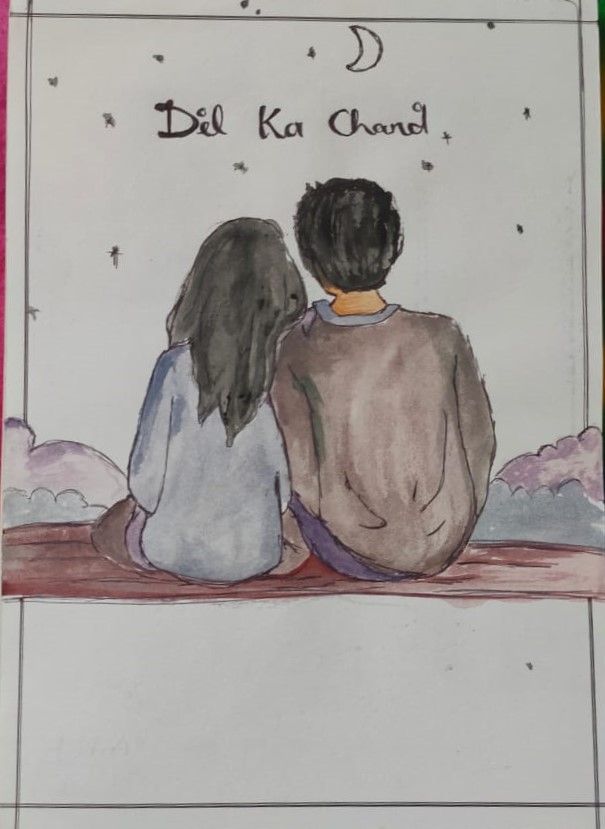 Dil Ka Chand